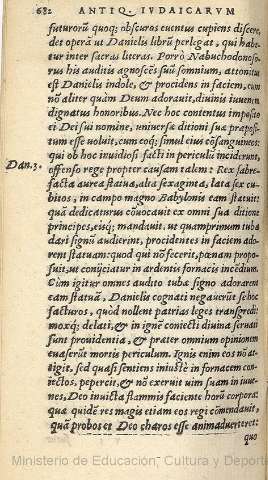 682 ANTIQ. IVDAICARVM
futurorũ quoq; obscuros euentus cupiens discere,
det operã ut Danielis librũ perlegat, qui habe
tur inter sacras literas. Porrò Nabuchodonoso
rus his auditis agnoscẽs suũ somnium, attonitus
est Danielis indole, & procidens in faciem, cum
nõ aliter quàm Deum adorauit, diuinis iuuenem
dignatus honoribus. Nec hoc contentus imposito
ei Dei sui nomine, uniuersæ ditioni suæ præposi-
tum esse uoluit, cum eoq; simul eius cõsanguineos:
qui ob hoc inuidiosi facti in periculũ inciderunt,
Dan.3. offenso rege propter causam talem: Rex fabre-
facta aurea statua, alta sexaginta, lata sex cu-
bitos, in campo magno Babylonis eam statuit:
quã dedicaturus cõuocauit ex omni sua ditione
principes, eisq; mandauit, ut quamprimum tuba
dari signũ audierint, procidentes in faciem ado-
rent statuam: quod qui nõ fecerit, pœnam propo-
suit, ut conijciatur in ardentis fornacis incẽdium.
Cùm igitur omnes audito tuba signo adorarent
eam statuã, Danielis cognati negauerũt se hoc
facturos, quòd nollent patrias leges transgredi:
moxq; delati, & in ignẽ coniecti diuina seruati
sunt prouidentia, & præter omnium opinionem
euaserũt mortis periculum. Ignis enim eos nõ at-
tigit, sed quasi sentiens iniustè in fornacem con-
iectos, pepercit, & nõ exeruit uim suam in iuue-
nes, Deo inuicta flammis faciente horũ corpora:
quæ quidẽ res magis etiam eos regi cõmendauit,
quã probos et Deo charos esse animaduerteret:
quo
Ministerio de Educación, Cultura y Deporte